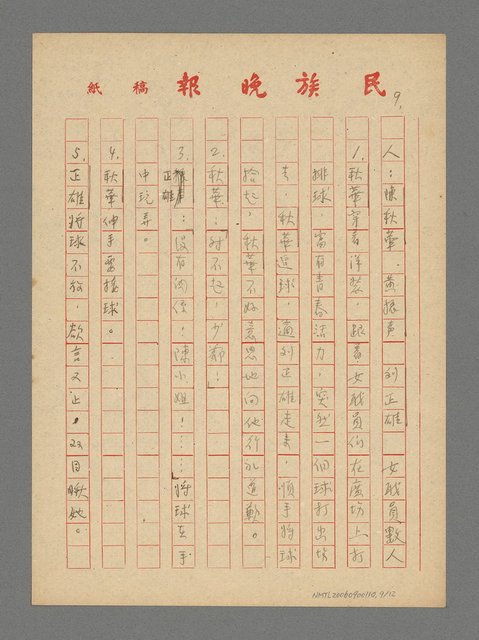 民族晚報 稿紙
9.
人：陳秋華、黃振聲、劉正雄、女職員數人
1. 秋華穿着洋裝，跟着女職員們在廣場上打
排球，富有青春活力，突然一個球打出場
去，秋華追球，適劉正雄走來，順手將球
拾起，秋華不好意思地向他行禮道歉。
2. 秋華：對不起，少爺！
3. 正雄：沒有關係，陳小姐！……將球在手
中玩弄。
4. 秋華伸手要接球。
5. 正雄將球不放，欲言又止，双目瞅她。
NMTL20060900110, 9/12